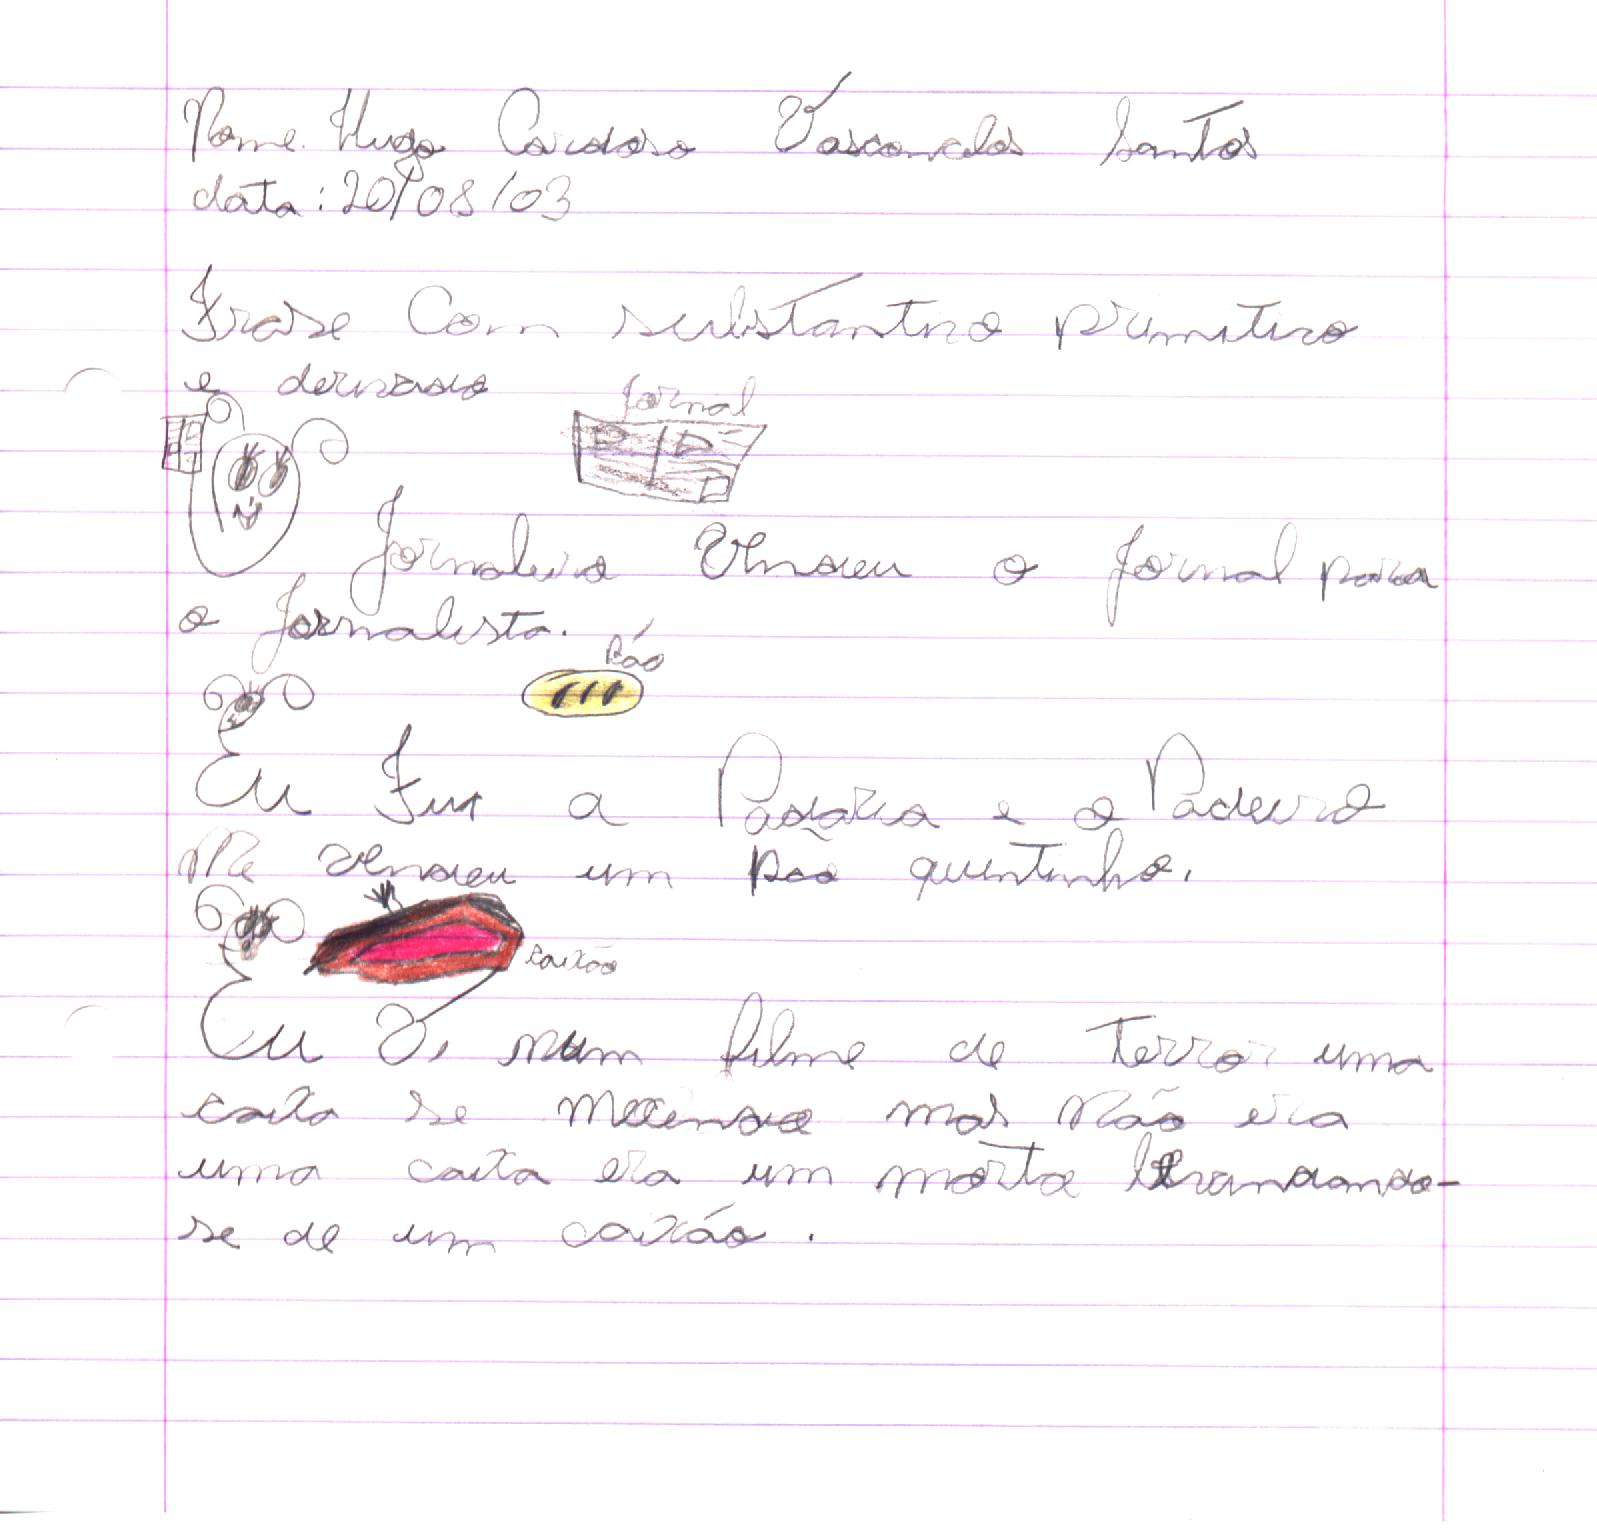 Nome. Hugo Cardoso Vasconcelos Santos
data: 20/08/03
Frase Com substantivo primitivo
e derivado
Jornal
Jornaleiro Vendeu o Jornal para
o Jornalista.
Pão
Eu Fui a Padaria e o Padeiro
Me vendeu um pão quentinho.
caixão
Eu Vi num filme de Terror uma
caixa se Mexendo mas Não era
uma caixa era um morto levandando-
se de um caixão.